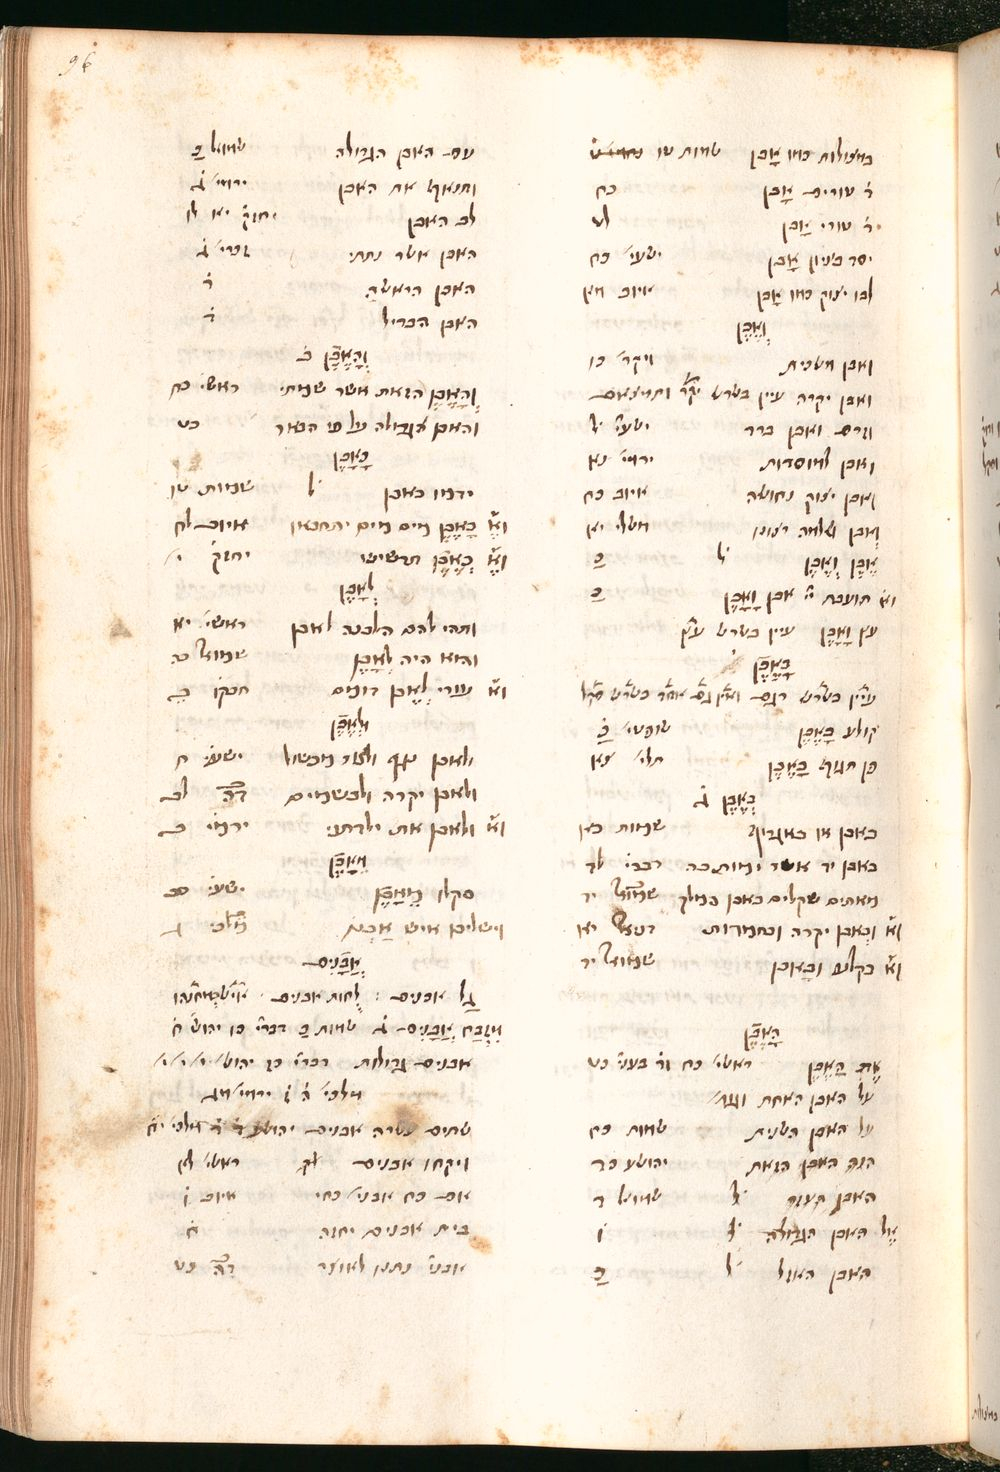 96
במצולות כמו אָבֶן שמות טו
ד טורים אָבֶן כח
ד טורי אָבֶן לט
יסד בציון אָבֶן ישעי׳ כח
לבו יצוק כמו אָבֶן איוב מא
וְאֶבֶן
ואבן משכית ויקר׳ כו
ואבן יקרה עיין בשרש יקר
וגרם ואבן ברד ישעי׳ ל
ואבן למוסדות ירמי׳ נא
ואבן יצוק נחושה איוב כח
ואבן שלמה רצונו משלי יא
אֶבֶן וְאֶבֶן ל כ
וא׳ תועבת יי׳ אבן וָאָבֶן כ
עץ וָאָבֶן עיין בשרש עץ
בְּאֶבֶן
עיין בשרש רגם
קולע בָּאֶבֶן שופטי׳ כ
פן תגוף בָּאֶבֶן תלי׳ צא
כְּאֶבֶן ג
באבן או באגרוף שמות כא
באבן יד אשר ימות בה במדבר לה
מאתים שקלים באבן המלך שמואל יד
וא׳ וכאבן יקרה ובחמודות דניאל יא
וא׳ בקלע ובאבן שמואל יז
הָאֶבֶן
אֶת הָאֶבֶן ראשי׳ כח
על האבן האחת וגומ׳
על האבן השנית שמות כח
הנה האבן הזאת יהושע כד
האבן העזר ל שמואל ד
אֶל האבן הגדולה ל ו
האבן האזל ל כ
עם האבן הגדולה שמואל כ
ותנאף את האבן ירמי׳ ג
לב האבן יחזק׳ יא לו
האבן אשר נתתי זכרי׳ ג
האבן הראשה ד
האבן הבדיל ד
וְהָאֶבֶן ב
וְהָאֶבֶן הזאת אשר שמתי ראשי׳ כח
והאבן הגדולה על פי הבאר כט
כָּאֶבֶן
ידמו כאבן ל שמות טו
וא׳ כָּאֶבֶן מים מים יתחבאו איוב לח
וא׳ כְּאֶבֶן תרשיש יחזק׳ י
לְאָבֶן
ותהי להם הלבנה לאבן ראשי׳ יא
והוא היה לְאָבֶן שמואל כה
וא׳ עורי לְאֶבֶן דומם חבקו׳ ב
וּלְאֶבֶן
ולאבן נגף ולצור מכשול ישעי׳ ח
ולאבן יקרה ולבשמים דה לב
וא׳ ולאבן את ילדתני ירמי׳ ב
מֵאֶבֶן
סקלו מֵאֶבֶן ישעי׳ סב
וישליכו איש אַבְנוֹ מלכי׳ ג
אֲבָנִים
גַּל אבנים לֻחות אבנים
מִזְבַּח אֲבָנִים ג שמות כ דברי׳ כז יהוש׳ ח
אבנים גדולות דברי׳ כז יהוש׳ י י י
מלכי׳ ה ז ירמי׳ מג
שתים עשרה אבנים יהושע ד ד מלכי׳ יח
ויקחו אבנים ראשי׳ לא
אם כח אבני׳ כחי איוב ו
בית אבנים יחזה ח
אבני׳ נתנו לאוצר דה כט